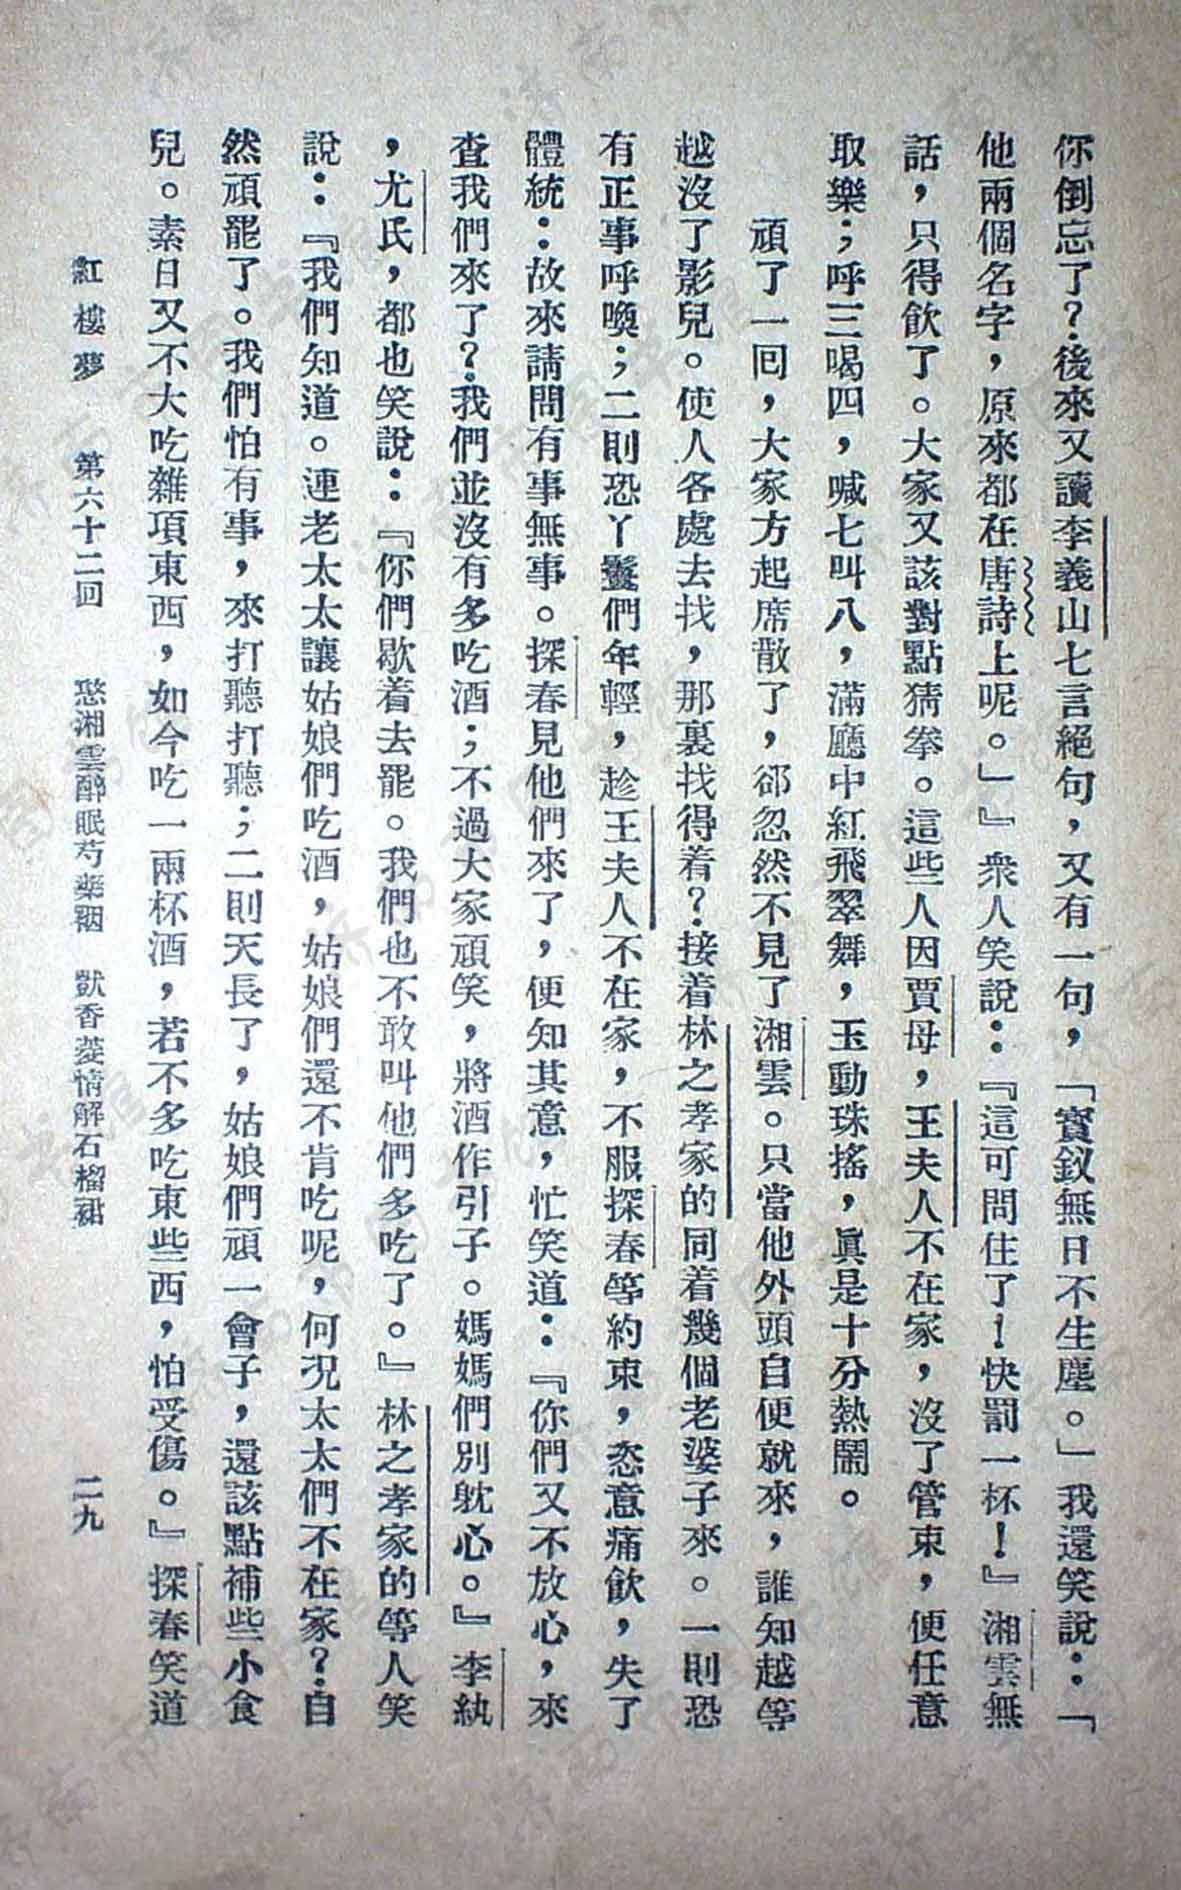 你倒忘了？後來又讀李義山七言絕句，又有一句，「寳釵無日不生塵。」我還笑說：「
他兩個名字，原來都在唐詩上呢。」』衆人笑說：『這可問住了！快罰一杯！』湘雲無
話，只得飲了。大家又該對點猜拳。這些人因賈母，王夫人不在家，沒了管束，便任意
取樂；呼三喝四，喊七叫八，滿廳中紅飛翠舞，玉動珠搖，眞是十分熱鬧。
頑了一囘，大家方起席散了，郤忽然不見了湘雲。只當他外頭自便就來，誰知越等
越沒了影兒。使人各處去找，那裏找得着？接着林之孝家的同着幾個老婆子來。一則恐
有正事呼喚；二則恐丫鬟們年輕，趁王夫人不在家，不服探春等約束，恣意痛飲，失了
體統：故來請問有事無事。探春見他們來了，便知其意，忙笑道：『你們又不放心，來
查我們來了？我們並沒有多吃酒；不過大家頑笑，將酒作引子。媽媽們別躭心。』李紈
，尤氏，都也笑說：『你們歇着去罷。我們也不敢叫他們多吃了。』林之孝家的等人笑
說：『我們知道。連老太太讓姑娘們吃酒，姑娘們還不肯吃呢，何况太太們不在家？自
然頑罷了。我們怕有事，來打聽打聽；二則天長了，姑娘們頑一會子，還該點補些小食
兒。素日又不大吃雜項東西，如今吃一兩杯酒，若不多吃東些西，怕受傷。』探春笑道
紅樓夢 第六十二回 憨湘雲醉眠芍藥裀 獃香菱情解石榴裙 二九